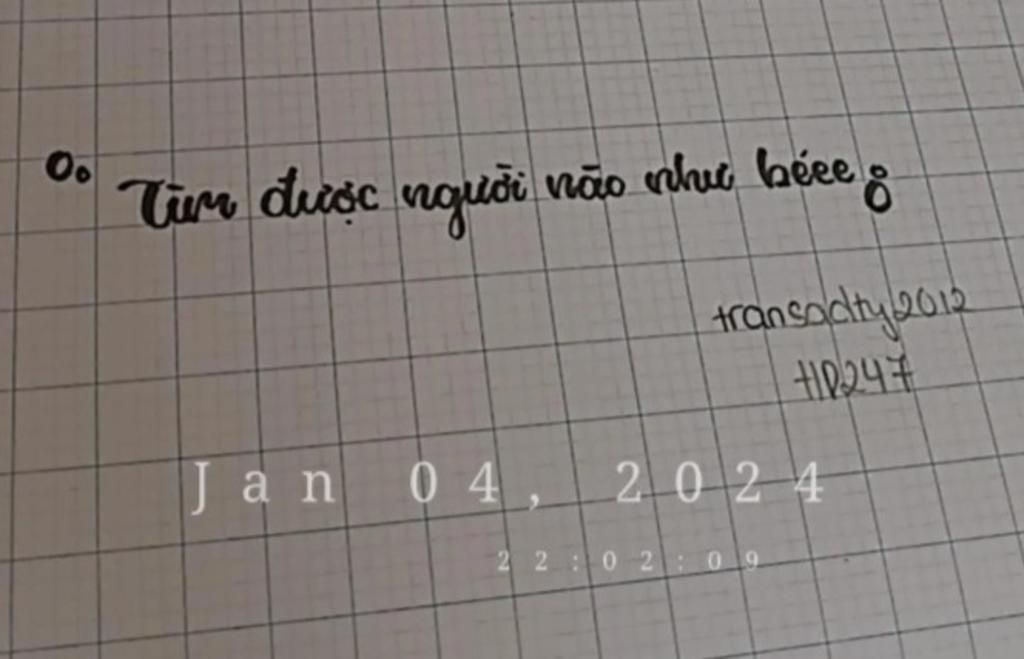 Tìm được người nào như béee
transadty2012
HD247
Jan 04, 2024
22:02:09